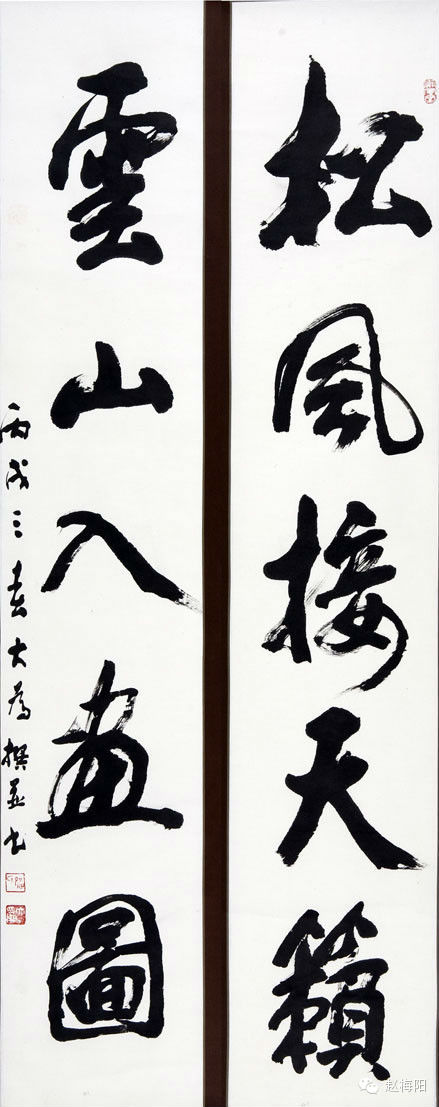 松風接天籟
雲山入畫圖
丙戌三春大為撰並书
赵梅阳